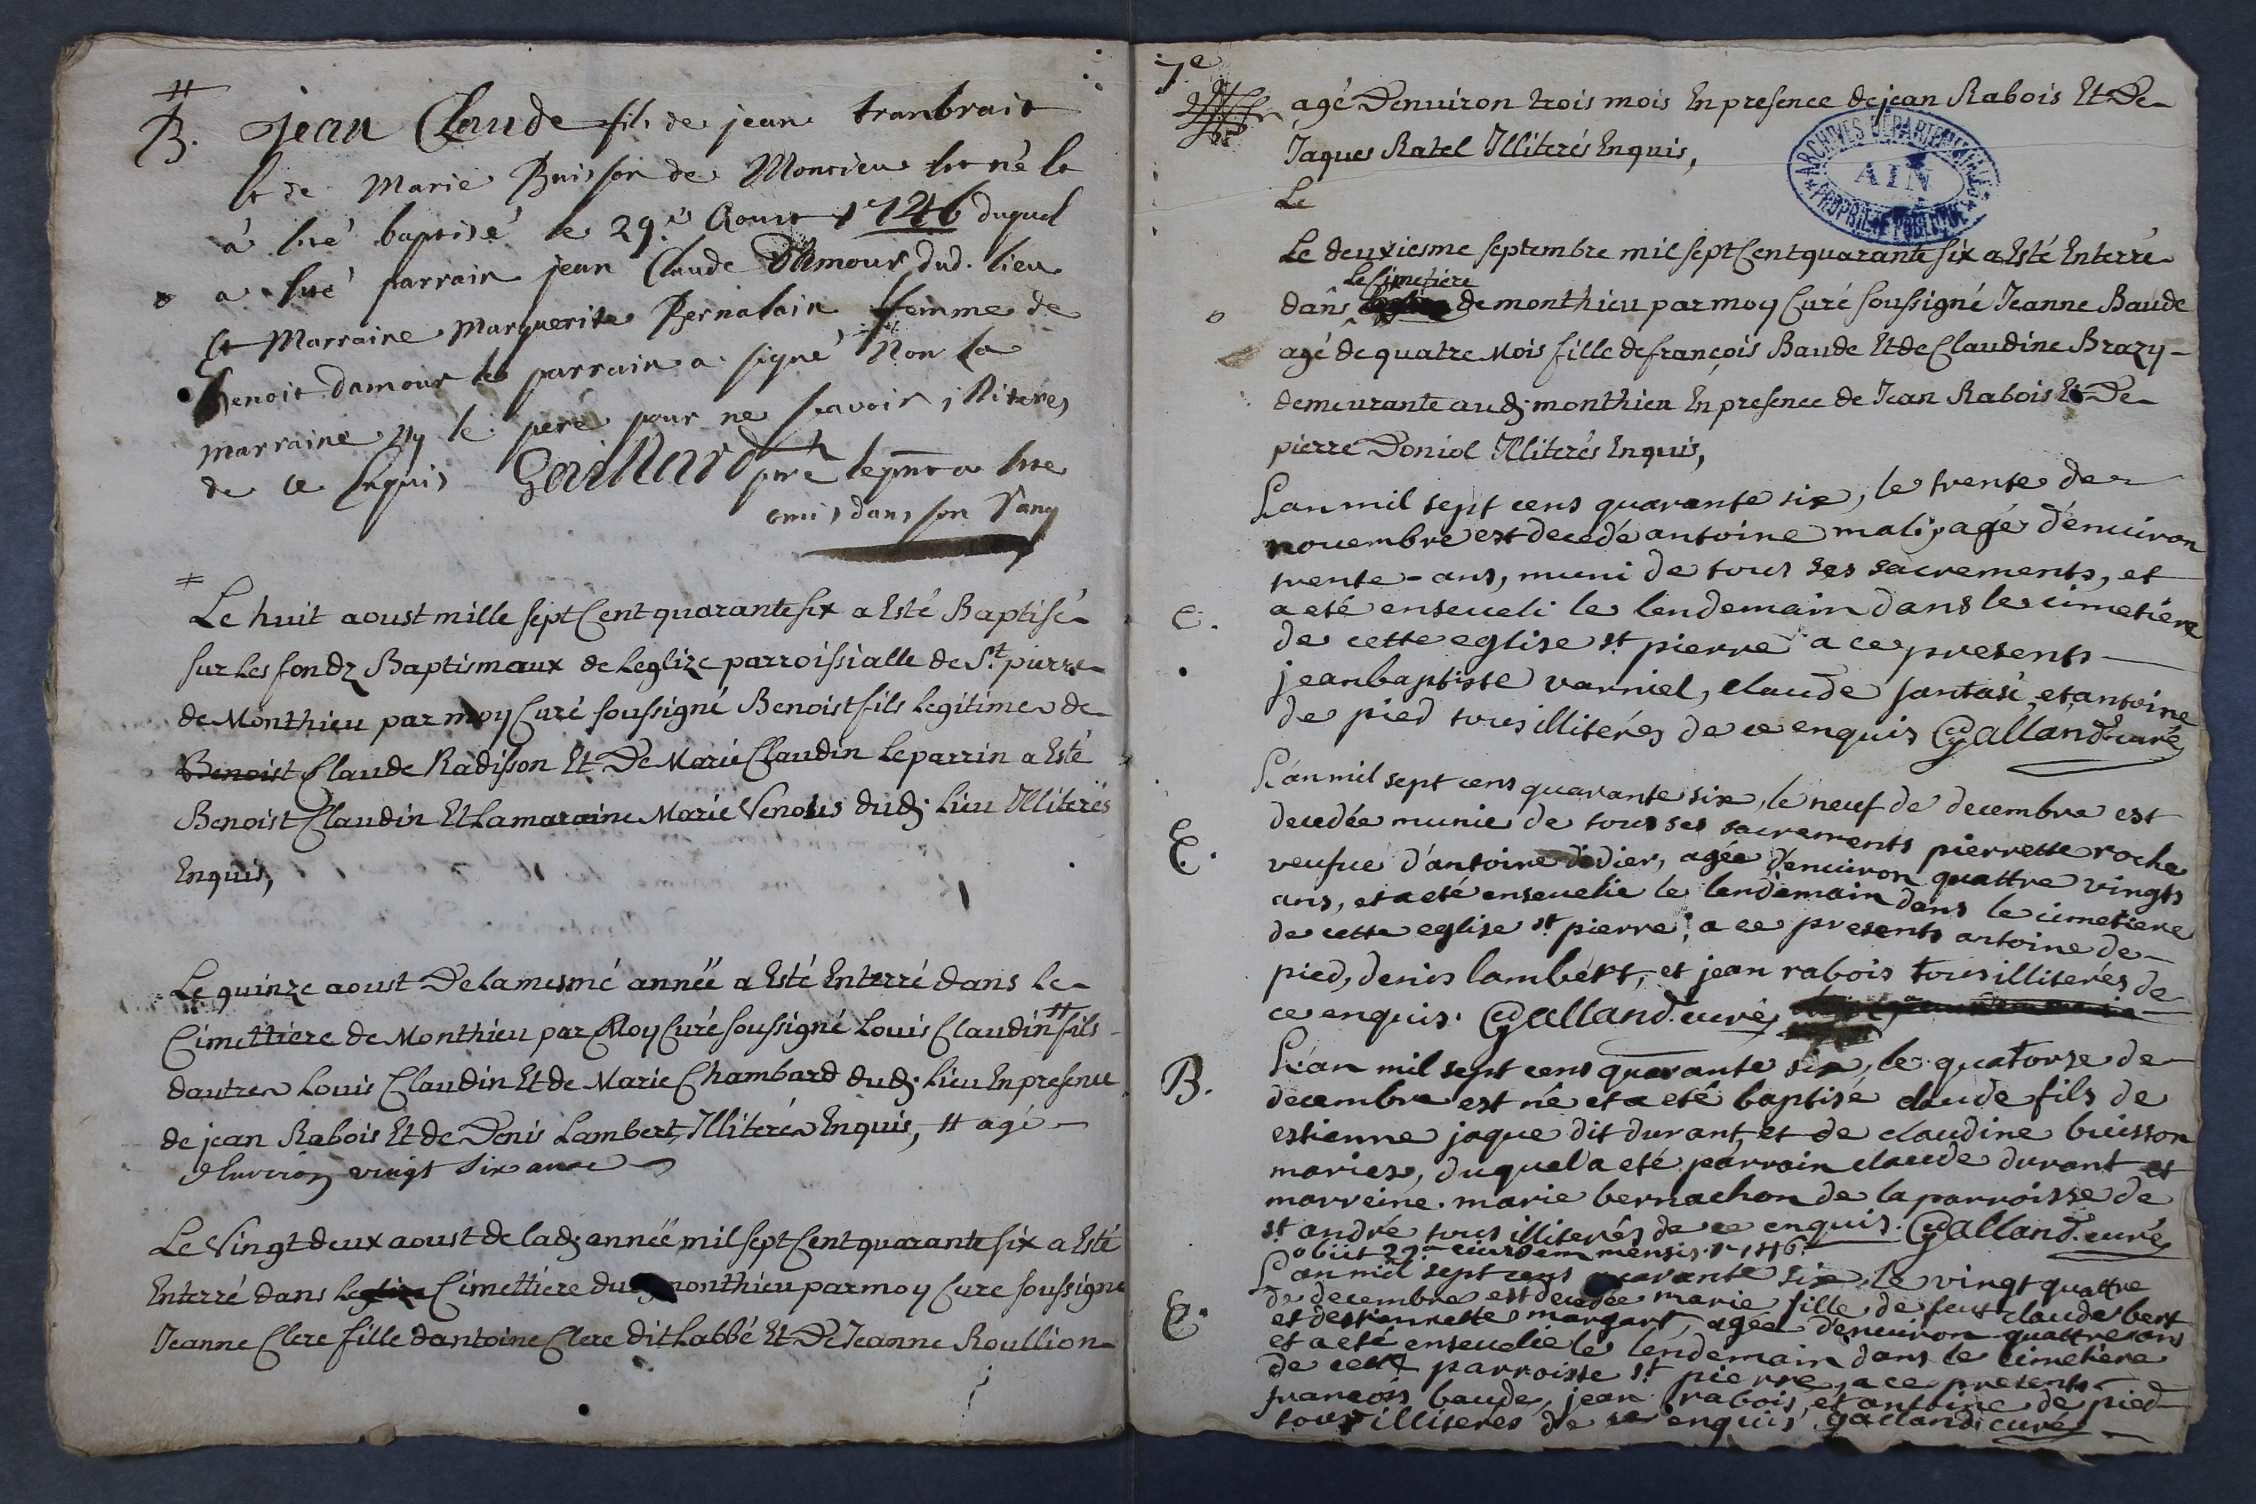 #
B. Jean Claude fils de jean tranbrait
et de Marie Buisson de Montieu est né et
a été baptisé le 29.e Aoust 1746 duquel
a été parrain jean Claude D'amour dud. lieu
Et Marraine Marguerite Bernalain femme de
Benoit damour le parrain a signé Non la
marraine ny le pere pour ne scavoir illiterés
de ce Enquis Gaillard pre le pnt a été
omis dans son rang
#
Le huit aoust mille sept Cent quarante six a Esté Baptisé
sur Les fondz Baptismaux de Leglize parroissialle de St. pierre
de Monthieu par moy Curé soussigné Benoist fils Legitime de
Benoist Claude Radisson Et De Marie Claudin Le parrin a Esté
Benoist Claudin Et La maraine Marie Venous dud. Lieu Illiterés
Enquis,
Le quinze aoust De la mesmé année a Esté Enterré dans Le
Cimettiere de Monthieu par Moy Curé soussigné Louis Claudin # fils
dautre Louis Claudin Et de Marie Chambard dud. Lieu En presence
de jean Rabois Et de Denis Lambert, Illiterés Enquis, # agé
d'Environ vingt six ans
Le Vingt deux aoust de lad. année mil sept Cent quarante six a Esté
Enterré dans Leglize Cimettiere dud. monthieu par moy Cure soussigné
Jeanne Clere fille dantoine Clere dit Labbé Et De Jeanne Roullion
7e
agé Denuiron trois mois En presence de jean Rabois Et De
Jaques Ratel Illiterés Enquis,
Le
ARCHIVES DÉPARTEMENTALES
AIN
PROPRIÉTÉ PUBLIQUE
Le deuxiesme septembre mil sept Cent quarante six a Esté Enterré
Le Cimetiere
dans de monthieu par moy Curé soussigné Jeanne Baude
agé de quatre Mois fille de françois Baude Et de Claudine Brazy
demeurante aud. monthieu En presence de Jean Rabois Et De
pierre Doniol Illiterés Enquis,
L'an mil sept cens quarante six, le trente de
novembre est decedé antoine mali, agé d'enuiron
trente - ans, muni de tous ses sacrements, et
e. a eté enseueli le lendemain dans le cimetiére
de cette eglise st. pierre a ce presents
jean baptiste varniel, claude fantasi, et antoine
de pied tous illiterés de ce enquis Galland. curé
L'an mil sept cens quarante six, le neuf de decembre est
decedée munie de tous ses sacrements pierrette roche
E. veufue d'antoine didier, agée d'enuiron quattre vingts
ans, et a eté enseuelie le lendemain dans le cimetiere
de cette eglise st. pierre, a ce presents antoine de
pied, denis lambért, et jean rabois tous illiterés de
ce enquis. Galland. curé
B. L'an mil sept cens quarante six, le quatorse de
decembre est né et a eté baptisé claude fils de
estienne jaque dit durant, et de claudine buisson
mariés, duquel a eté parrain claude durant et
marreine. marie bernachon de la parroisse de
st. andré tous illiterés de ce enquis. Galland. curé
obiit 27a eiusdem mensis 1746.
L'an mil sept cens quarante six, le vingt quattre
E. de decembre est decedée marie fille de feu claude bert
et destiennette margart, agée d'enuiron quattre ans
et a eté enseuelie le lendemain dans le cimetiere
de cette parroisse st. pierre, a ce presents
françois baude, jean rabois, et antoine de pied
tous illiterés de ce enquis galland. curé